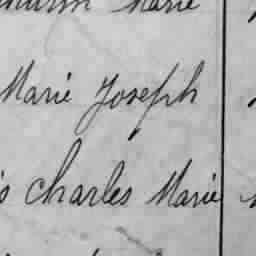 Marie
Marie Joseph
Charles Marie